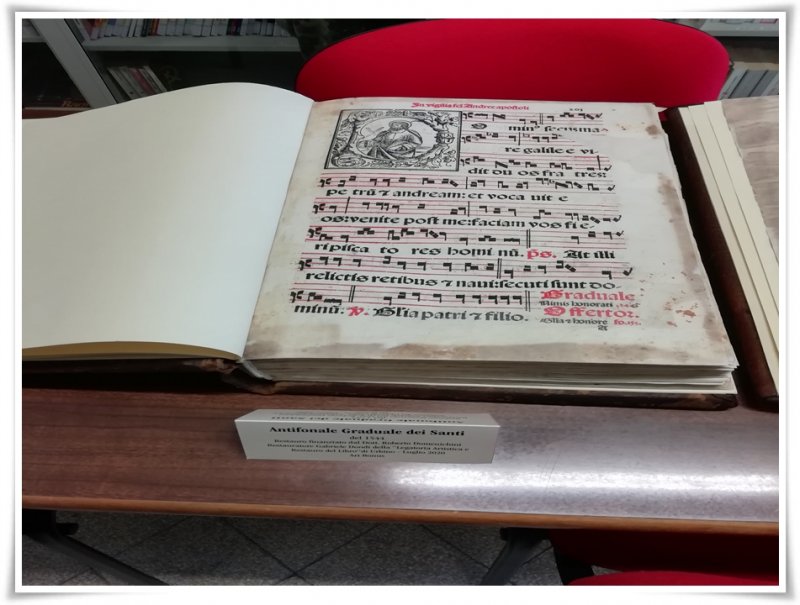 In vigilia sci Andree apostoli
O minꝰ secus ma
re galilee vi
dit du os fra tres:
pe trū ⁊ andream: et voca uit e
os: venite post me: faciam vos fi e
ri pisca to res homi nū. ps. At illi
relictis retibus ⁊ naui: secuti sunt do-
minū: ℣. Glia patri ⁊ filio.
Graduale
Nimis honorati
Offertor.
Glia ⁊ honore
Antifonale Graduale dei Santi
del 1544
Restauro finanziato dal Dott. Roberto Domenichini
Restauratore Gabriele Dondi della "Legatoria Artistica e
Restauro del Libro" di Urbino - Luglio 2020
Art Bonus